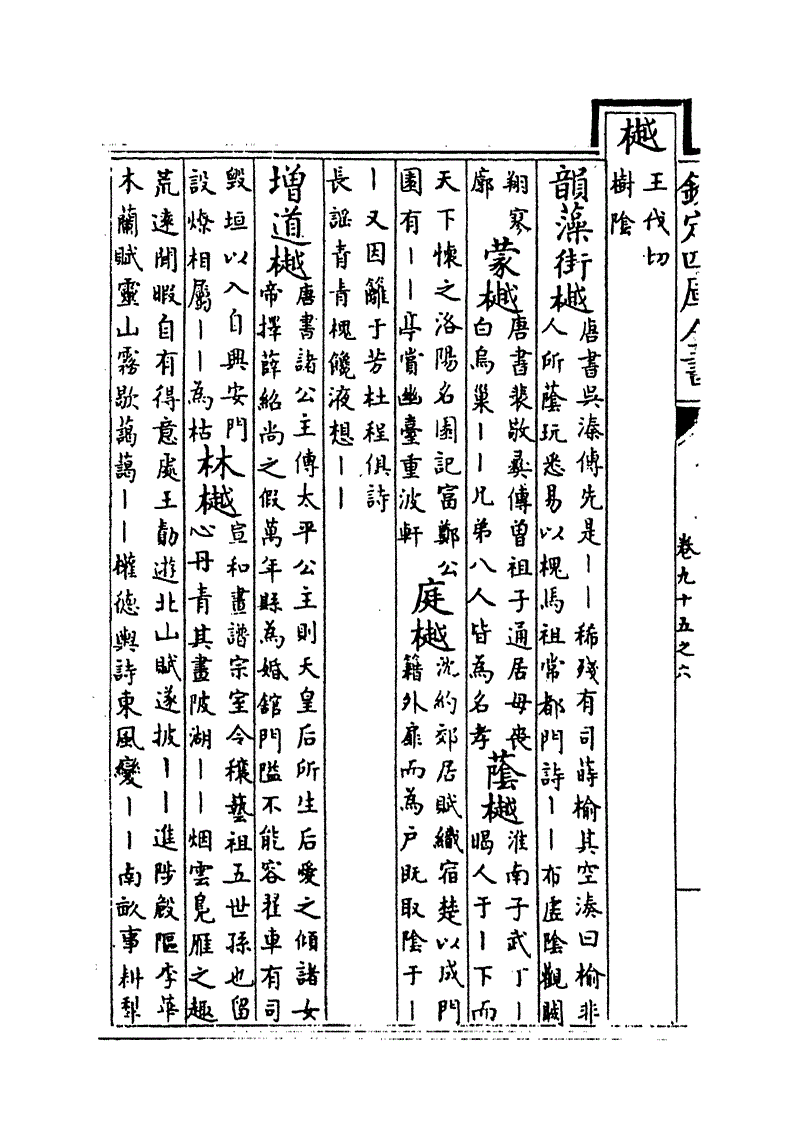 欽定四庫全書
卷九十五之六
樾
王伐切
樹陰
韻藻街樾
唐書吳湊傳先是丨丨稀殘有司蒔榆其空湊曰榆非
人所蔭玩悉易以槐馬祖常都門詩丨丨布虛陰觀闕
翔寥
廓
蒙樾
唐書裴敬彝傳曾祖子通居母喪
白烏巢丨丨兄弟八人皆為名孝
蔭樾
淮南子武丁丨
暍人于丨下而
天下懷之洛陽名園記富鄭公
園有丨丨亭賞幽臺重波軒
庭樾
沈約郊居賦織宿楚以成門
籍外扉而為戶既取陰于丨
丨又因籬于芳杜程俱詩
長謡青青槐饞液想丨丨
增道樾
唐書諸公主傳太平公主則天皇后所生后愛之傾諸女
帝擇薛紹尚之假萬年縣為婚舘門隘不能容翟車有司
毀垣以入自興安門
設燎相屬丨丨為枯
林樾
宣和畫譜宗室令穰藝祖五世孫也留
心丹青其畫陂湖丨丨烟雲鳬雁之趣
荒遠閒暇自有得意處王勔遊北山賦遂披丨丨進陟殿隩李華
木蘭賦靈山霧歇藹藹丨丨權德輿詩東風變丨丨南畝事耕犁